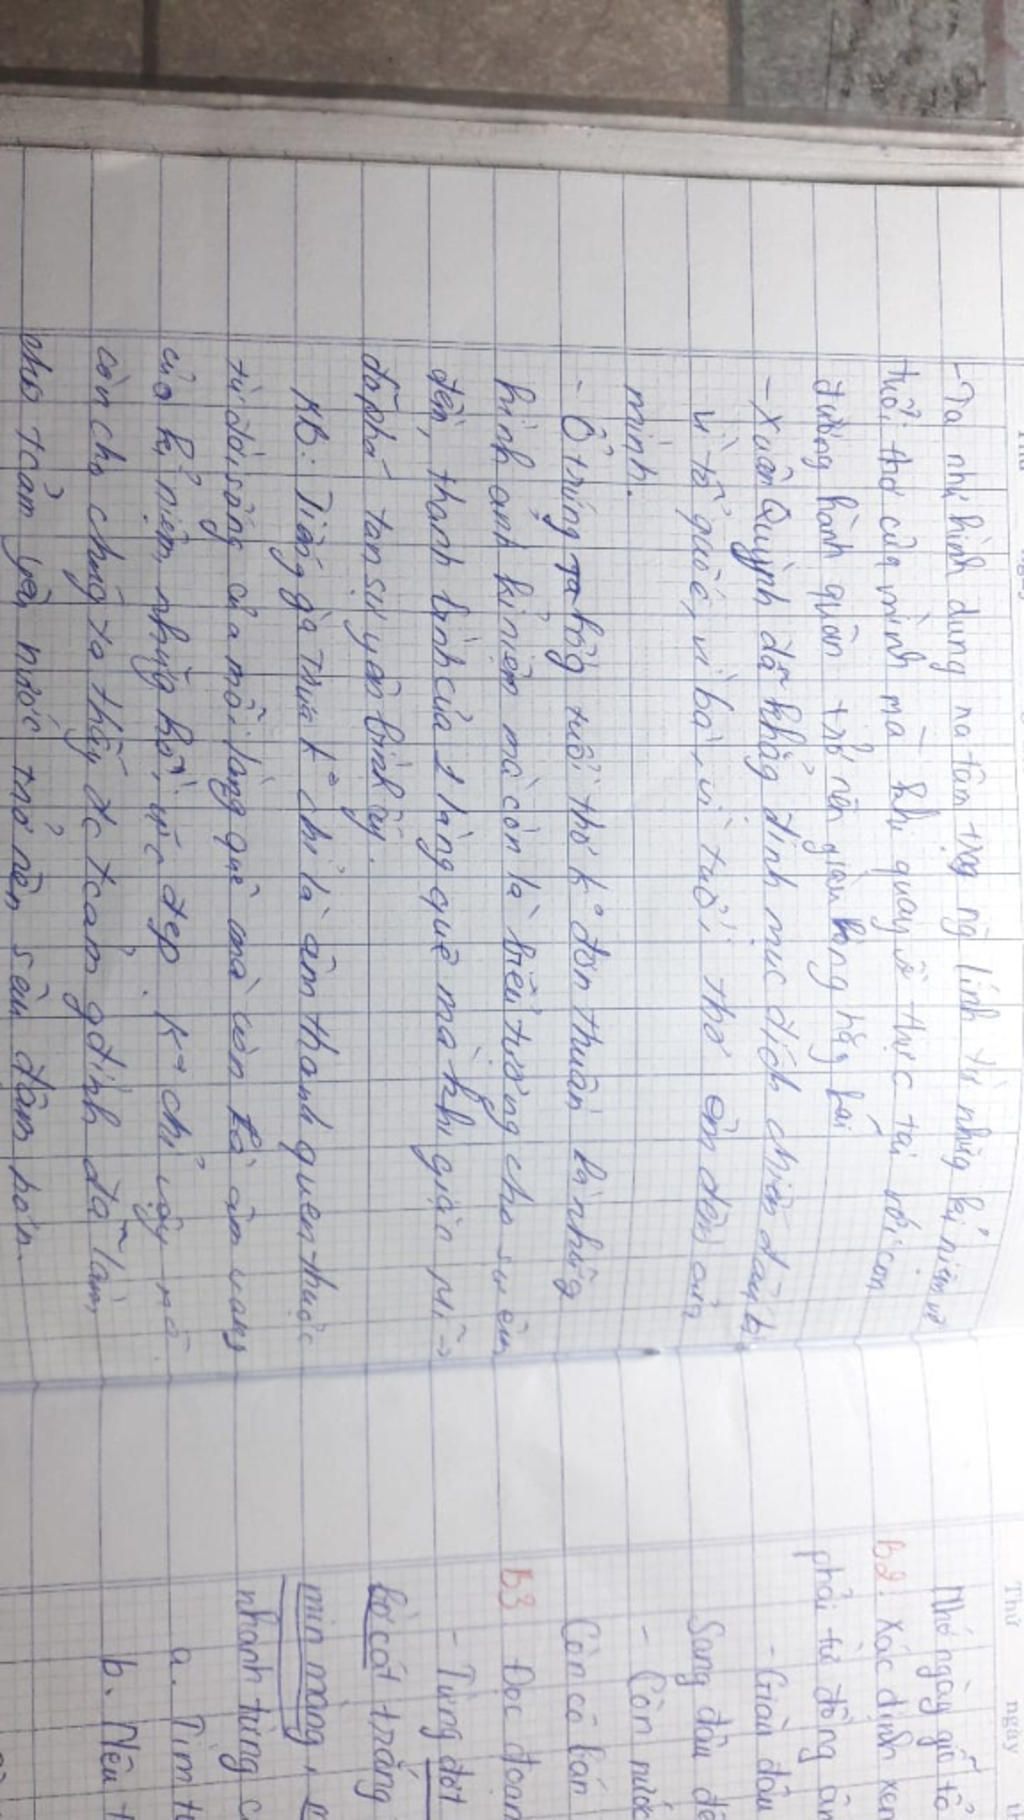 -Ta như hình dung ra tâm trạng ng lính từ những kỉ niệm về
tuổi thơ của mình mà khi quay về thực tại với con
đường hành quân trở nên hăng hái
-Xuân Quỳnh đã khẳng định mục đích chiến đấu là
vì tổ quốc, vì bà, vì tuổi thơ êm đềm của
mình.
- Ổ trứng hồng tuổi thơ k° đơn thuần là những
hình ảnh kỉ niệm mà còn là biểu tượng cho sự êm
đềm, thanh bình của 1 làng quê mà khi giặc Mĩ ->
đã phá tan sự yên bình ấy.
KB: Tiếng gà trưa k° chỉ là âm thanh quen thuộc
từ đời sống của mỗi làng quê mà còn là âm vang
của kỉ niệm, những hồi ức đẹp. k° chỉ vậy mà
còn cho chúng ta thấy đc tcảm gđình đã làm
cho tcảm yêu nước trở nên sâu đậm hơn.
Thứ ngày
Nhớ ngày giỗ tổ
B2: Xác định xem
phải từ đồng âm
- Giàn đầu
Sang đầu
- Còn nước
Còn có bán
B3 Đọc đoạn
- Từng đợt
bờ cát trắng
mịn màng,
nhánh từng
a. Tìm
b. Nêu